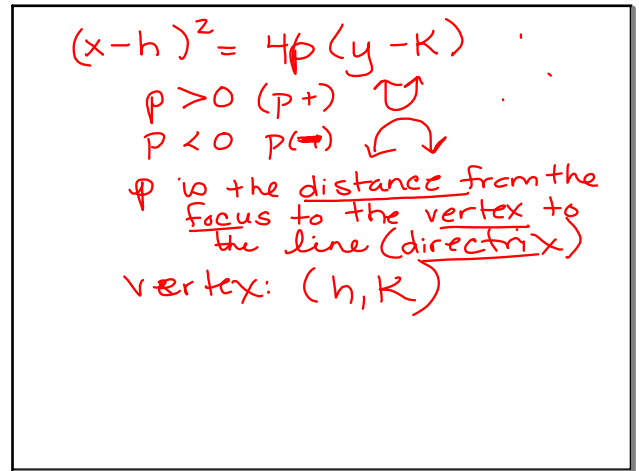 (x-h)² = 4p(y-K)
p > 0 (p+)
p < 0 p(-)
p is the distance from the
focus to the vertex to
the line (directrix)
vertex: (h, K)